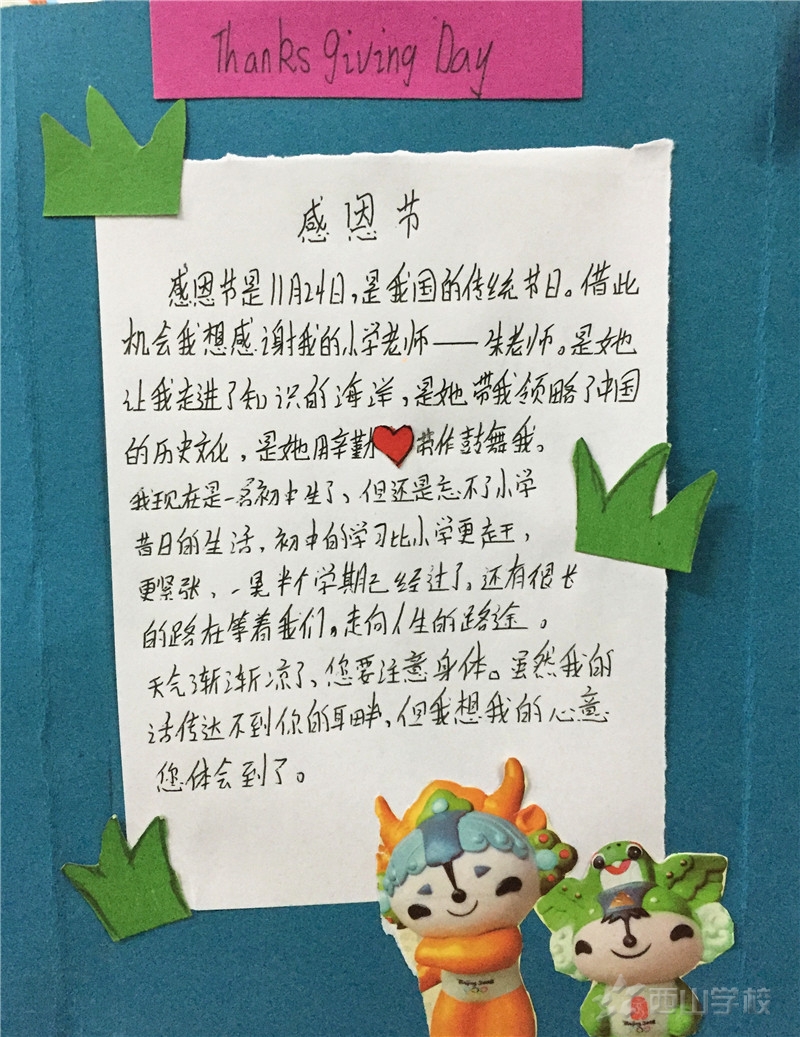 Thanksgiving Day
感恩节
感恩节是11月24日,是我国的传统节日。借此
机会我想感谢我的小学老师——朱老师。是她
让我走进了知识的海洋,是她带我领略了中国
的历史文化,是她用辛勤 劳作鼓舞我。
我现在是一名初中生了、但还是忘不了小学
昔日的生活,初中的学习比小学更
更紧张,一晃半个学期已经过了。还有很长
的路在等着我们。走向人生的路途。
天气渐渐凉了、您要注意身体。虽然我的
话传达不到你的耳畔,但我想我的心意
您体会到了。
Beijing 2008
Beijing 2008
西山学校